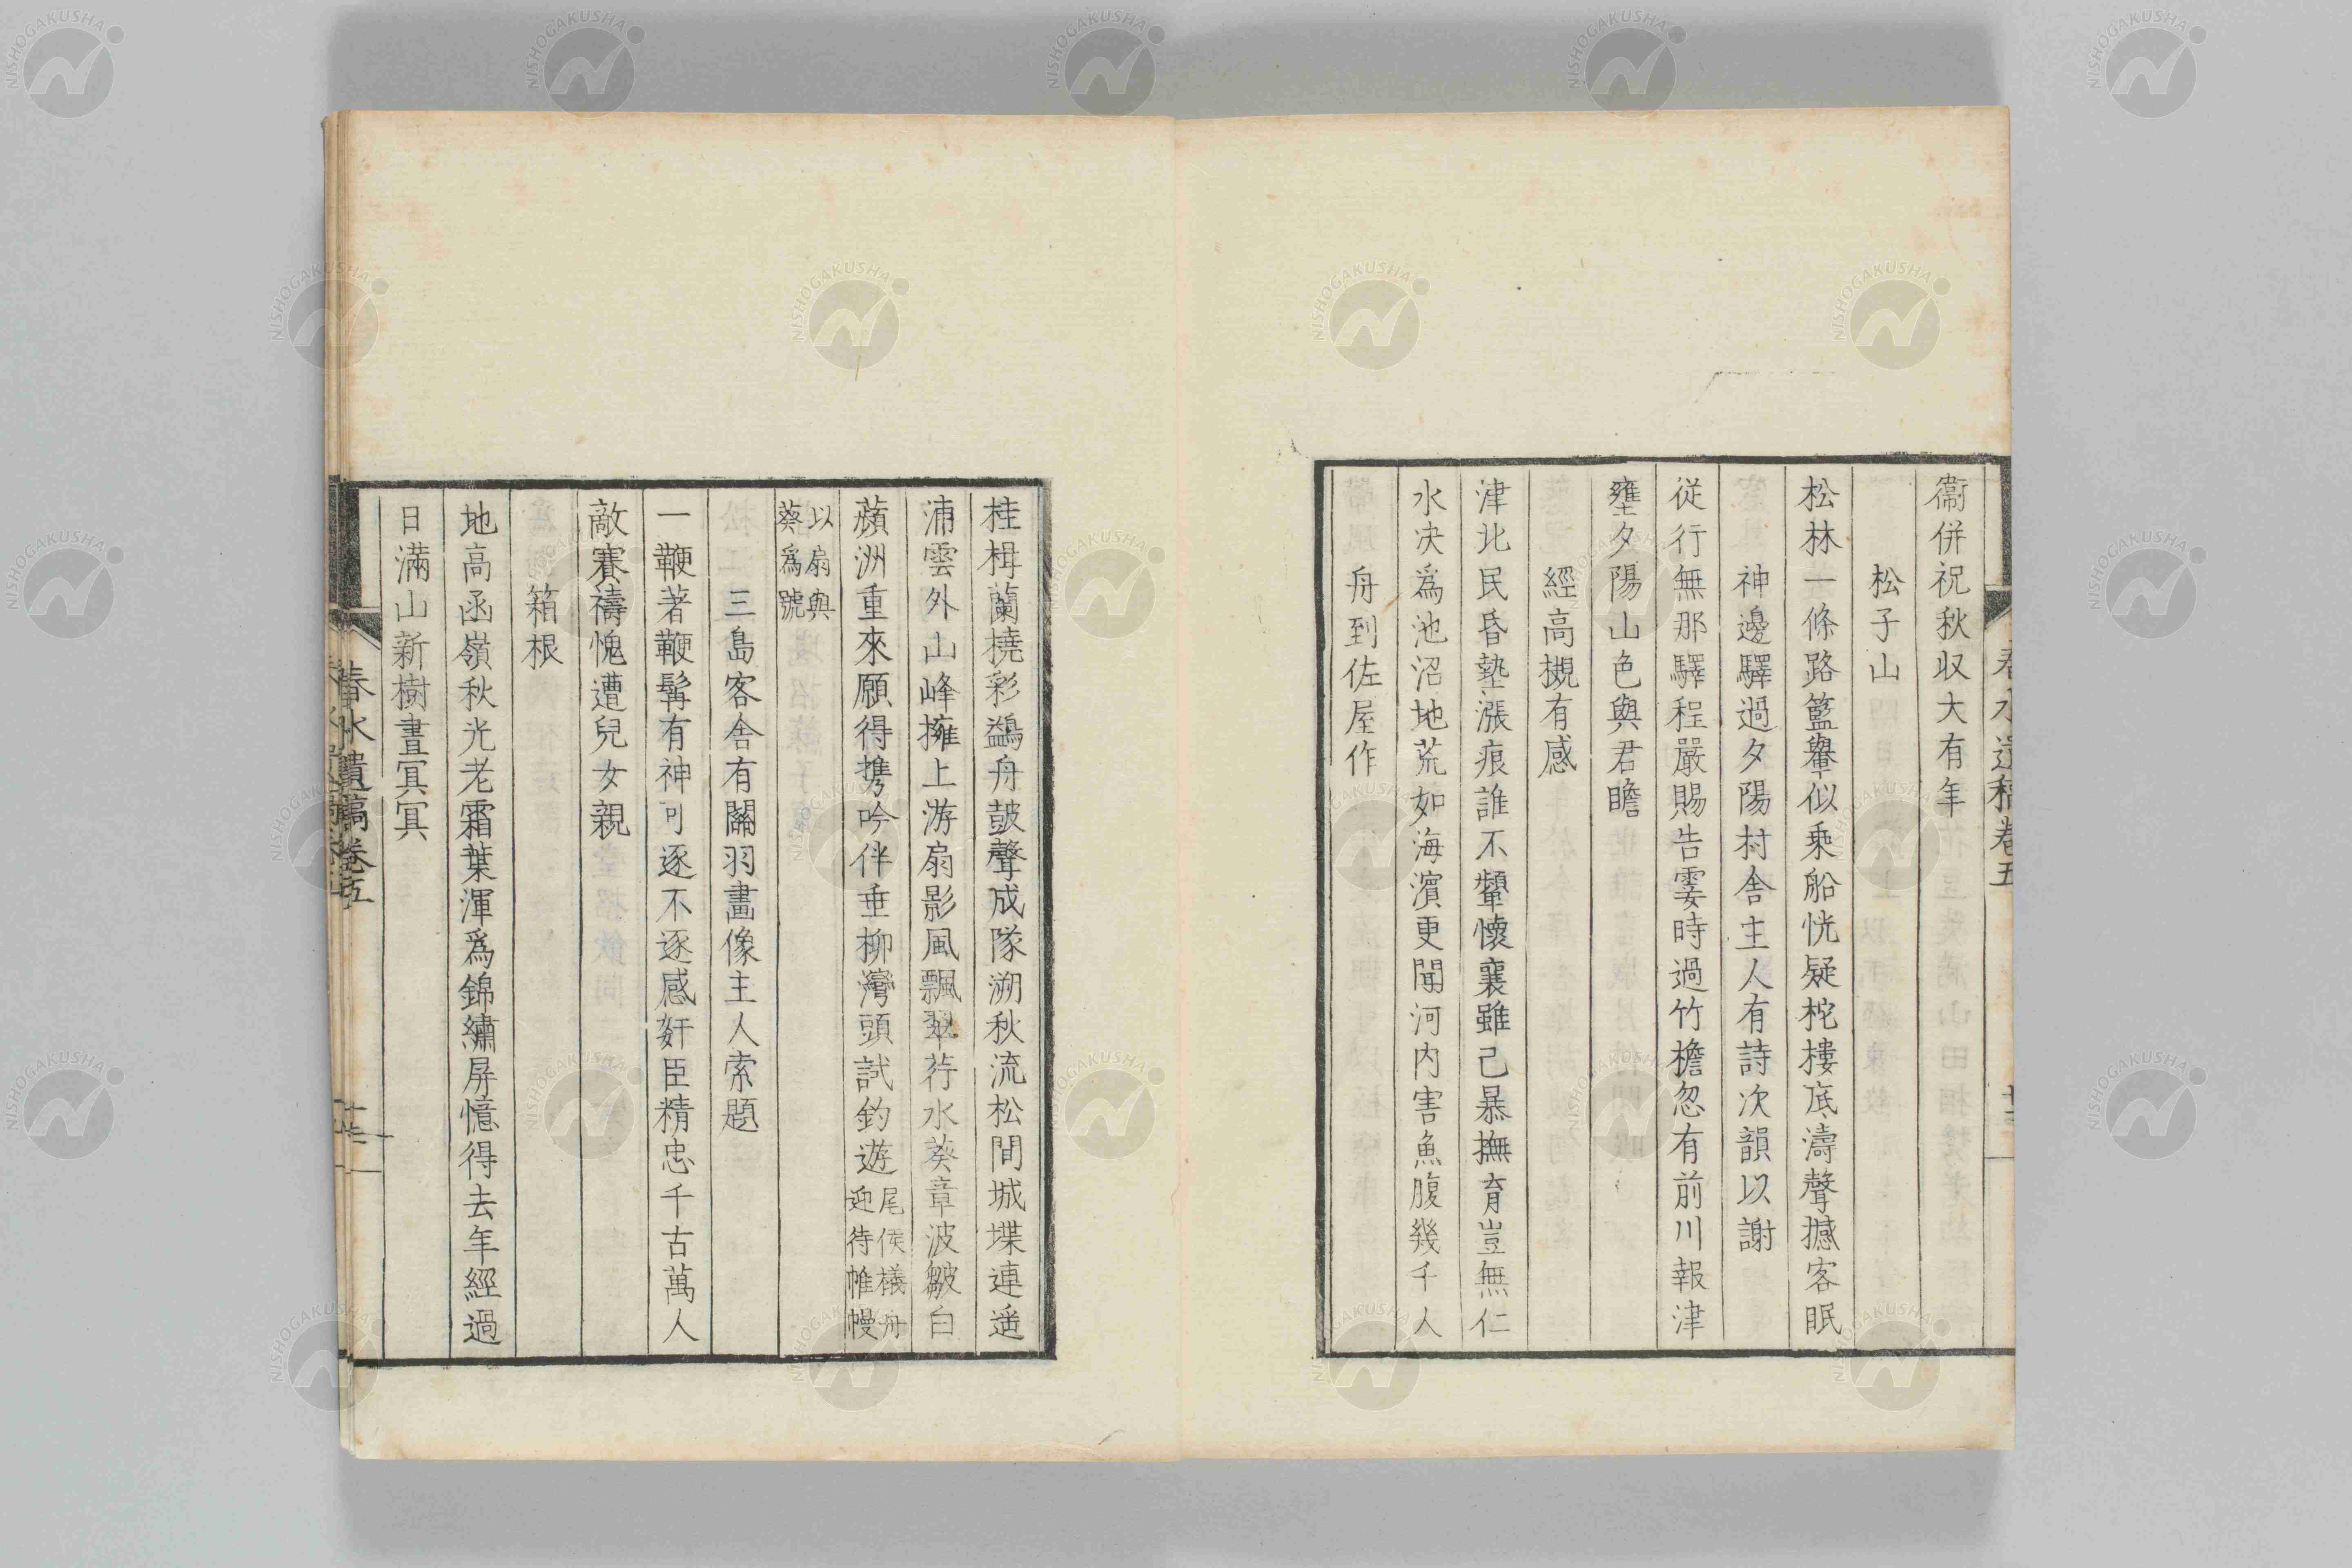 衞併祝秋収大有年
松子山
松林一條路籃轝似乘船恍疑柁樓底濤聲撼客眠
神邊驛過夕陽村舍主人有詩次韻以謝
從行無那驛程嚴賜告霎時過竹檐忽有前川報津
壅夕陽山色與君瞻
經高槻有感
津北民昏墊漲痕誰不顰懷襄雖己暴撫育豈無仁
水决爲池沼地荒如海濱更聞河内害魚腹幾千人
舟到佐屋作
春水遺稿卷五
桂楫蘭橈彩鷁舟鼓聲成隊溯秋流松間城堞連遥
浦雲外山峰擁上游扇影風飄翠荇水葵章波皺白
蘋洲重來願得携吟伴垂柳灣頭試釣遊尾侯檥舟
迎待帷幔
以扇與
葵爲號
三島客舍有關羽畫像主人索題
一鞭著鞭髯有神可逐不逐感奸臣精忠千古萬人
敵賽禱愧遭兒女親
箱根
地高函嶺秋光老霜葉渾爲錦繡屏憶得去年經過
日滿山新樹晝冥冥
春水遺稿卷五
NISHOGAKUSHA